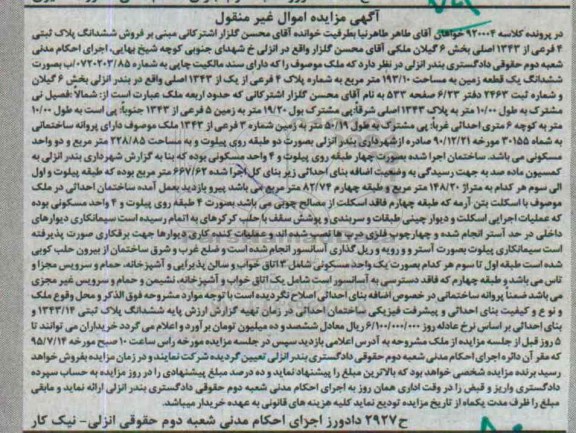 آگهی مزایده اموال غیر منقول
در پرونده کلاسه ۹۲۰۰۰۴ خواهان آقای طاهر طاهرنیا بطرفیت خوانده آقای محسن گلزار اشترکانی مبنی بر فروش ششدانگ پلاک ثبتی
۴ فرعی از ۱۳۴۳ اصلی بخش ۶ گیلان ملکی آقای محسن گلزار واقع در انزلی خ شهدای جنوبی کوچه شیخ بهایی، اجرای احکام مدنی
شعبه دوم حقوقی دادگستری بندر انزلی در نظر دارد که ملک موصوف را که دارای سند مالکیت چاپی به شماره ۰۷۲۰۲۰۳/۸۵/ب بصورت
ششدانگ یک قطعه زمین به مساحت ۱۹۳/۱۰ متر مربع به شماره پلاک ۴ فرعی از یک از ۱۳۴۳ اصلی واقع در بندر انزلی بخش ۶ گیلان
و شماره ثبت ۲۴۶۳ دفتر ۶/۲۳ صفحه ۵۳۳ به نام آقای محسن گلزار اشترکانی که حدود اربعه ملک عبارت است از: شمالا: فصیل نی
مشترک به طول ۱۰/۰۰ متر به پلاک ۱۳۴۳ اصلی شرقا: پی مشترک بول ۱۹/۲۰ متر به زمین ۵ فرعی از ۱۳۴۳ جنوبا: پی است به طول ۱۰/۰۰
متر به کوچه ۶ متری احداثی غربا: پی مشترک به طول ۱۹/۵۰ متر به زمین شماره ۳ فرعی از ۱۳۴۳ ملک موصوف دارای پروانه ساختمانی
به شماه ۳۰۱۵۵ مورخه ۹۰/۱۲/۲۱ صادره ازشهرداری بندر انزلی بصورت دو طبقه روی پیلوت و به مساحت ۲۲۸/۸۵ متر مربع و دو واحد
مسکونی می باشد. ساختمان اجرا شده بصورت چهار طبقه روی پیلوت و ۴ واحد مسکونی بوده که بنا به گزارش شهرداری بندر انزلی به
کمسیون ماده صد به جهت رسیدگی به وضعیت اضافه بنای احداثی زیر بنای کل اجرا شده ۶۶۷/۶۲ متر مربع بوده که طبقه پیلوت و اول
الی سوم هر کدام به متراژ ۱۴۸/۲۰ متر مربع و طبقه چهارم ۸۲/۷۴ متر مربع می باشد پیرو بازدید بعمل آمده ساختمان احداثی در ملک
موصوف با اسکلت بتن آرمه که طبقه چهارم فاقد اسکلت از مصالح چوبی می باشد بصورت ۴ طبقه روی پیلوت و ۴ واحد مسکونی بوده
که عملیات اجرایی اسکلت و دیوار چینی طبقات و سربندی و پوشش سقف با حلب کرکره‌ای به اتمام رسیده است سیمانکاری دیوارهای
داخلی در حد آستر انجام شده و چهارچوب فلزی درب ها نصب شده اند و عملیات کنده کاری دیوارها جهت برقکاری صورت پذیرفته
است سیمانکاری پیلوت بصورت آستر و رویه و ریل گذاری آسانسور انجام شده است و ضلع غرب و شرق ساختمان از بیرون حلب کوبی
شده است طبقه اول تا سوم هر کدام بصورت یک واحد مسکونی شامل ۳ اتاق خواب و سالن پذیرایی و آشپزخانه، حمام و سرویس مجزا و
تاس می باشد و طبقه چهارم که فاقد دسترسی به آسانسور است شامل یک اتاق خواب و آشپزخانه، نشیمن و حمام و سرویس غیر مجزی
می باشد ضمنا پروانه ساختمانی در خصوص اضافه بنای احداثی اصلاح نگردیده است با توجه موارد مشروحه فوق الذکر و محل وقوع ملک
و نوع و کیفیت بنای احداثی و پیشرفت فیزیکی ساختمان احداثی در زمان تهیه گزارش ارزش پایه ششدانگ پلاک ثبتی ۱۳۴۳/۱۴ و
بنای احداثی بر اساس نرخ عادله روز ۶/۱۰۰/۰۰۰/۰۰۰ ریال معادل ششصد و ده میلیون تومان برآورد و اعلام می گردد خریداران می توانند تا
۵ روز قبل از جلسه مزایده از ملک مشروحه به آدرس اعلامی بازدید سپس در جلسه مزایده مورخه راس ساعت ۱۰ صبح مورخه ۹۵/۷/۱۴
که مقر آن دائره اجرای احکام مدنی شعبه دوم حقوقی دادگستری بندر انزلی تعیین گردیده شرکت نمایند و در زمان مزایده بفروش خواهد
رسید برنده مزایده شخصی خواهد بود که بالاترین مبلغ را پیشنهاد نماید و ده درصد مبلغ پیشنهادی را در روز مزایده به حساب سپرده
دادگستری واریز و قبض را در وقت اداری همان روز به اجرای احکام مدنی شعبه دوم حقوقی دادگستری بندر انزلی ارائه نماید و مابقی
مبلغ را ظرف مدت یکماه از تاریخ مزایده تودیع نماید کلیه هزینه های قانونی به عهده خریدار میباشد.
ح ۲۹۲۷ دادورز اجرای احکام مدنی شعبه دوم حقوقی انزلی- نیک کار